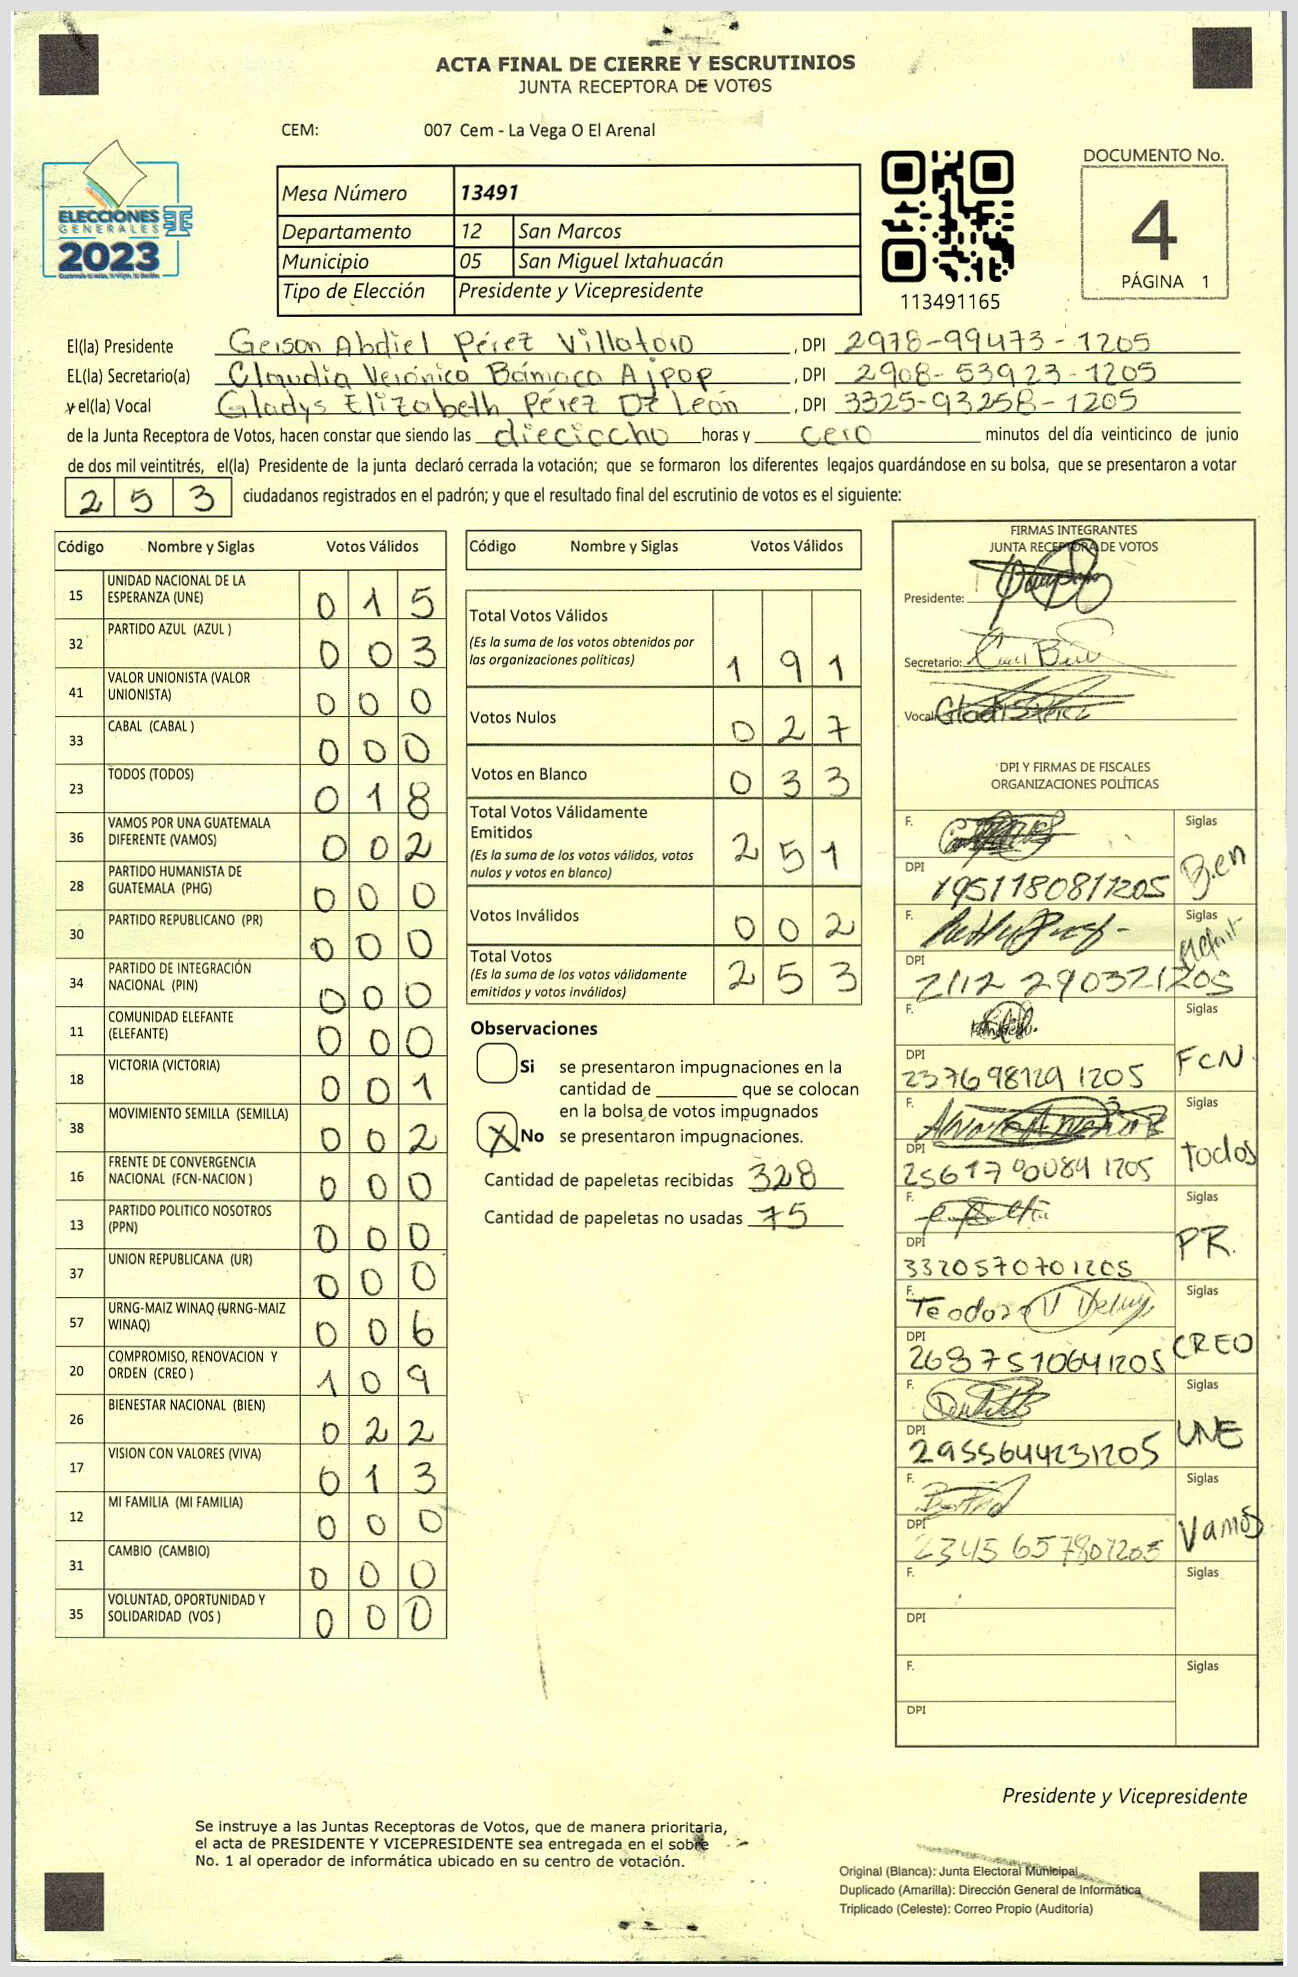 ACTA FINAL DE CIERRE Y ESCRUTINIOS
JUNTA RECEPTORA DE VOTOS
CEM: 007 Cem - La Vega O El Arenal
ELECCIONES
GENERALES
2023
Mesa Número 13491
Departamento 12 San Marcos
Municipio 05 San Miguel Ixtahuacán
Tipo de Elección Presidente y Vicepresidente
113491165
DOCUMENTO No.
4
PÁGINA 1
El(la) Presidente Geison Abdiel Pérez Villatoro , DPI 2978-99473-1205
EL(la) Secretario(a) Claudia Verónica Bámaca Ajpop , DPI 2908-53923-1205
y el(la) Vocal Gladys Elizabeth Pérez De León , DPI 3325-93258-1205
de la Junta Receptora de Votos, hacen constar que siendo las dieciocho horas y cero minutos del día veinticinco de junio
de dos mil veintitrés, el(la) Presidente de la junta declaró cerrada la votación; que se formaron los diferentes legajos quardándose en su bolsa, que se presentaron a votar
253 ciudadanos registrados en el padrón; y que el resultado final del escrutinio de votos es el siguiente:
Código Nombre y Siglas Votos Válidos
15 UNIDAD NACIONAL DE LA ESPERANZA (UNE) 015
32 PARTIDO AZUL (AZUL ) 003
41 VALOR UNIONISTA (VALOR UNIONISTA) 000
33 CABAL (CABAL ) 000
23 TODOS (TODOS) 018
36 VAMOS POR UNA GUATEMALA DIFERENTE (VAMOS) 002
28 PARTIDO HUMANISTA DE GUATEMALA (PHG) 000
30 PARTIDO REPUBLICANO (PR) 000
34 PARTIDO DE INTEGRACIÓN NACIONAL (PIN) 000
11 COMUNIDAD ELEFANTE (ELEFANTE) 000
18 VICTORIA (VICTORIA) 001
38 MOVIMIENTO SEMILLA (SEMILLA) 002
16 FRENTE DE CONVERGENCIA NACIONAL (FCN-NACION ) 000
13 PARTIDO POLITICO NOSOTROS (PPN) 000
37 UNION REPUBLICANA (UR) 000
57 URNG-MAIZ WINAQ (URNG-MAIZ WINAQ) 006
20 COMPROMISO, RENOVACION Y ORDEN (CREO ) 109
26 BIENESTAR NACIONAL (BIEN) 022
17 VISION CON VALORES (VIVA) 013
12 MI FAMILIA (MI FAMILIA) 000
31 CAMBIO (CAMBIO) 000
35 VOLUNTAD, OPORTUNIDAD Y SOLIDARIDAD (VOS ) 000
Código Nombre y Siglas Votos Válidos
Total Votos Válidos 191
(Es la suma de los votos obtenidos por
las organizaciones políticas)
Votos Nulos 027
Votos en Blanco 033
Total Votos Válidamente
Emitidos 251
(Es la suma de los votos válidos, votos
nulos y votos en blanco)
Votos Inválidos 002
Total Votos 253
(Es la suma de los votos válidamente
emitidos y votos inválidos)
Observaciones
Si se presentaron impugnaciones en la
cantidad de ________ que se colocan
en la bolsa de votos impugnados
X No se presentaron impugnaciones.
Cantidad de papeletas recibidas 328
Cantidad de papeletas no usadas 75
FIRMAS INTEGRANTES
JUNTA RECEPTORA DE VOTOS
Presidente:
Secretario:
Vocal:
DPI Y FIRMAS DE FISCALES
ORGANIZACIONES POLÍTICAS
F. Siglas Bien
DPI 1951180811205
F. Siglas
DPI 2112 290321205
F. Siglas FCN
DPI 237698129 1205
F. Siglas Todos
DPI 256170084 1205
F. Siglas PR.
DPI 3320570701205
F. Teodoro Siglas CREO
DPI 2687510641205
F. Siglas UNE
DPI 2955644231205
F. Siglas Vamos
DPI 2345 657801205
F. Siglas
DPI
F. Siglas
DPI
Presidente y Vicepresidente
Se instruye a las Juntas Receptoras de Votos, que de manera prioritaria,
el acta de PRESIDENTE Y VICEPRESIDENTE sea entregada en el sobre
No. 1 al operador de informática ubicado en su centro de votación.
Original (Blanca): Junta Electoral Municipal
Duplicado (Amarilla): Dirección General de Informática
Triplicado (Celeste): Correo Propio (Auditoría)